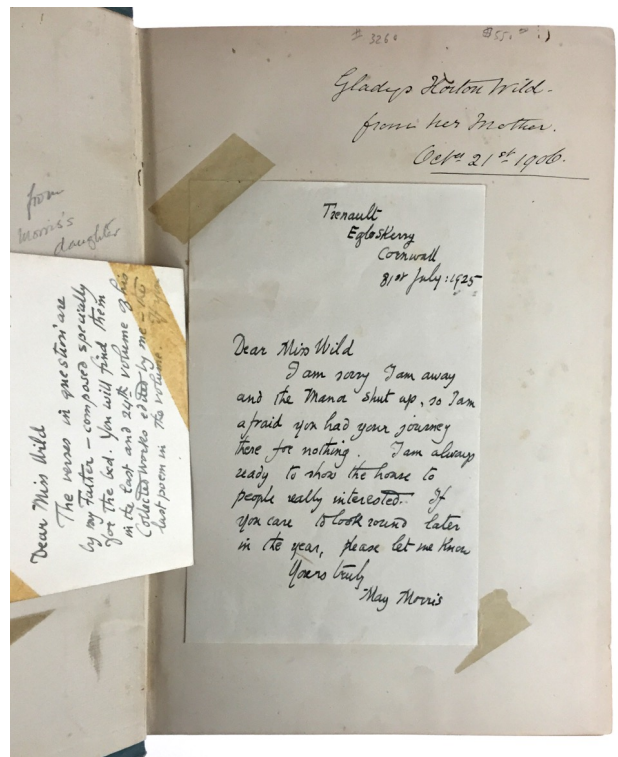 # 3260
Gladys Horton Wild -
from her Mother.
Octr 21st 1906.
from
Morris's
daughter
Dear Miss Wild
The verses in question are
by my Father - composed specially
for the bed. You will find them
in the last and 24th volume of his
Collected Works edited by me - the
last poem in the volume.
Trenault
Egloskerry
Cornwall
31st July : 1925
Dear Miss Wild
I am sorry I am away
and the Manor shut up, so I am
afraid you had your journey
there for nothing. I am always
ready to show the house to
people really interested. If
you care to look round later
in the year, please let me know
Yours truly
May Morris